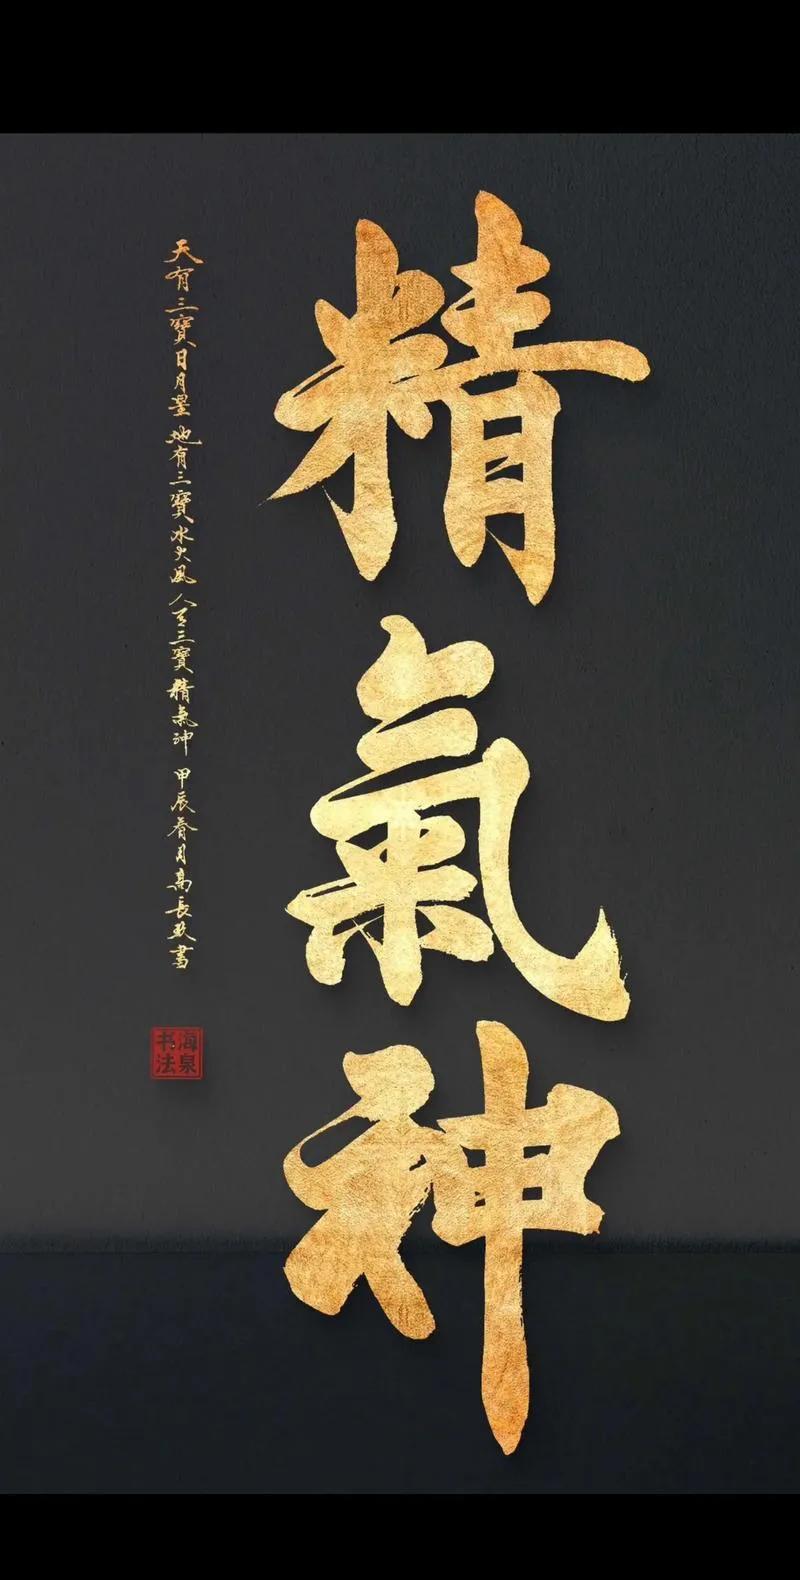 精氣神
天有三寶日月星 地有三寶水火風 人有三寶精氣神 甲辰春月高長玖書
海泉书法